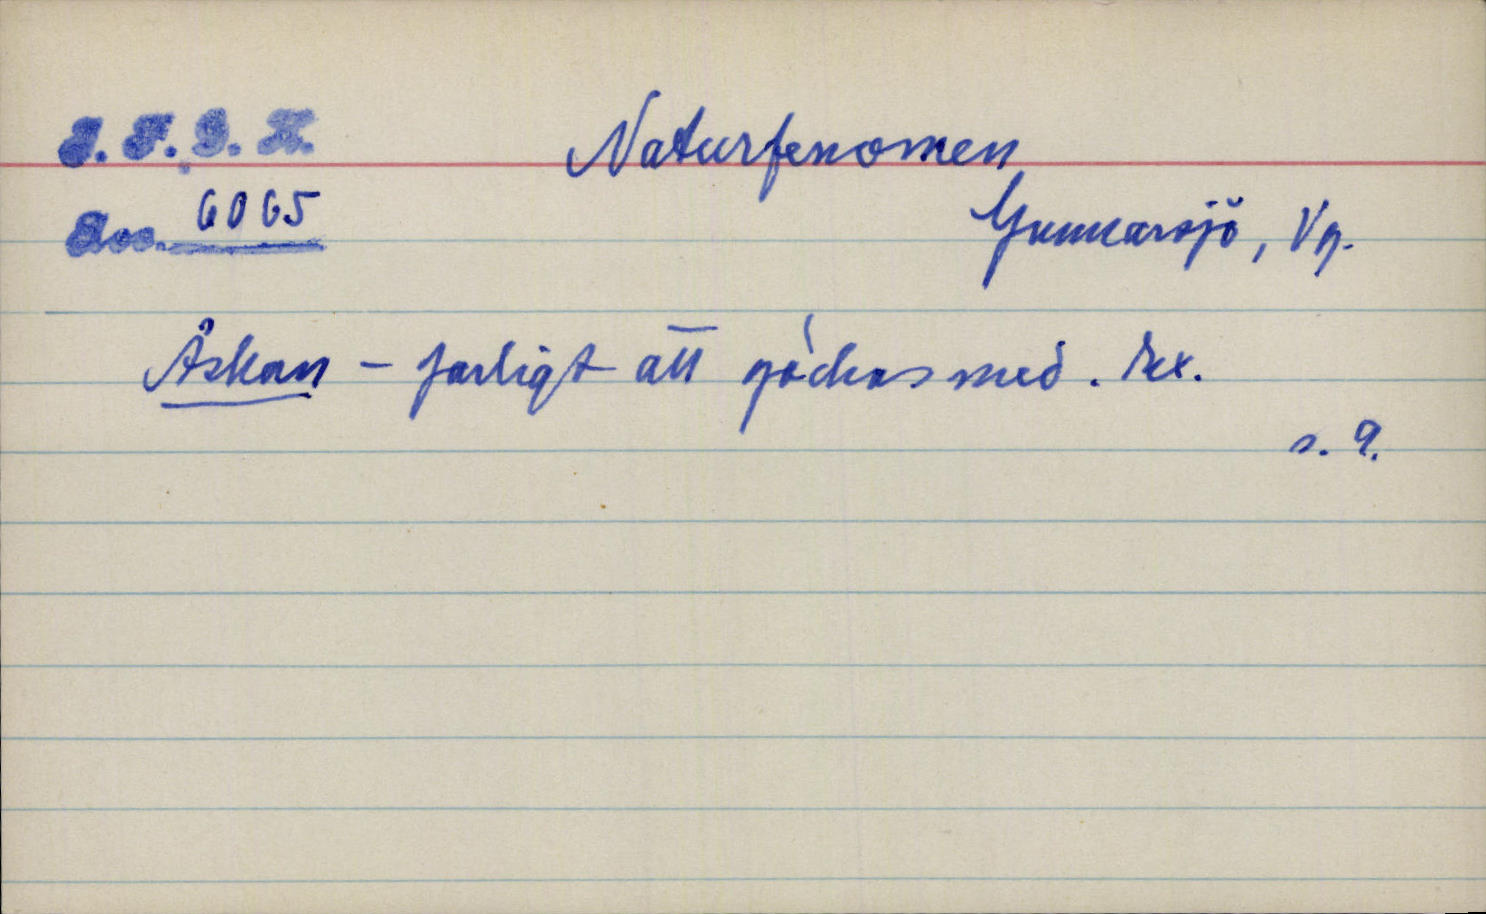 I. F. G. H.
Naturfenomen
Acc. 6065
Gunnarsjö, Vg.
Åskan - farligt att gäckas med. Ex.
s. 9.